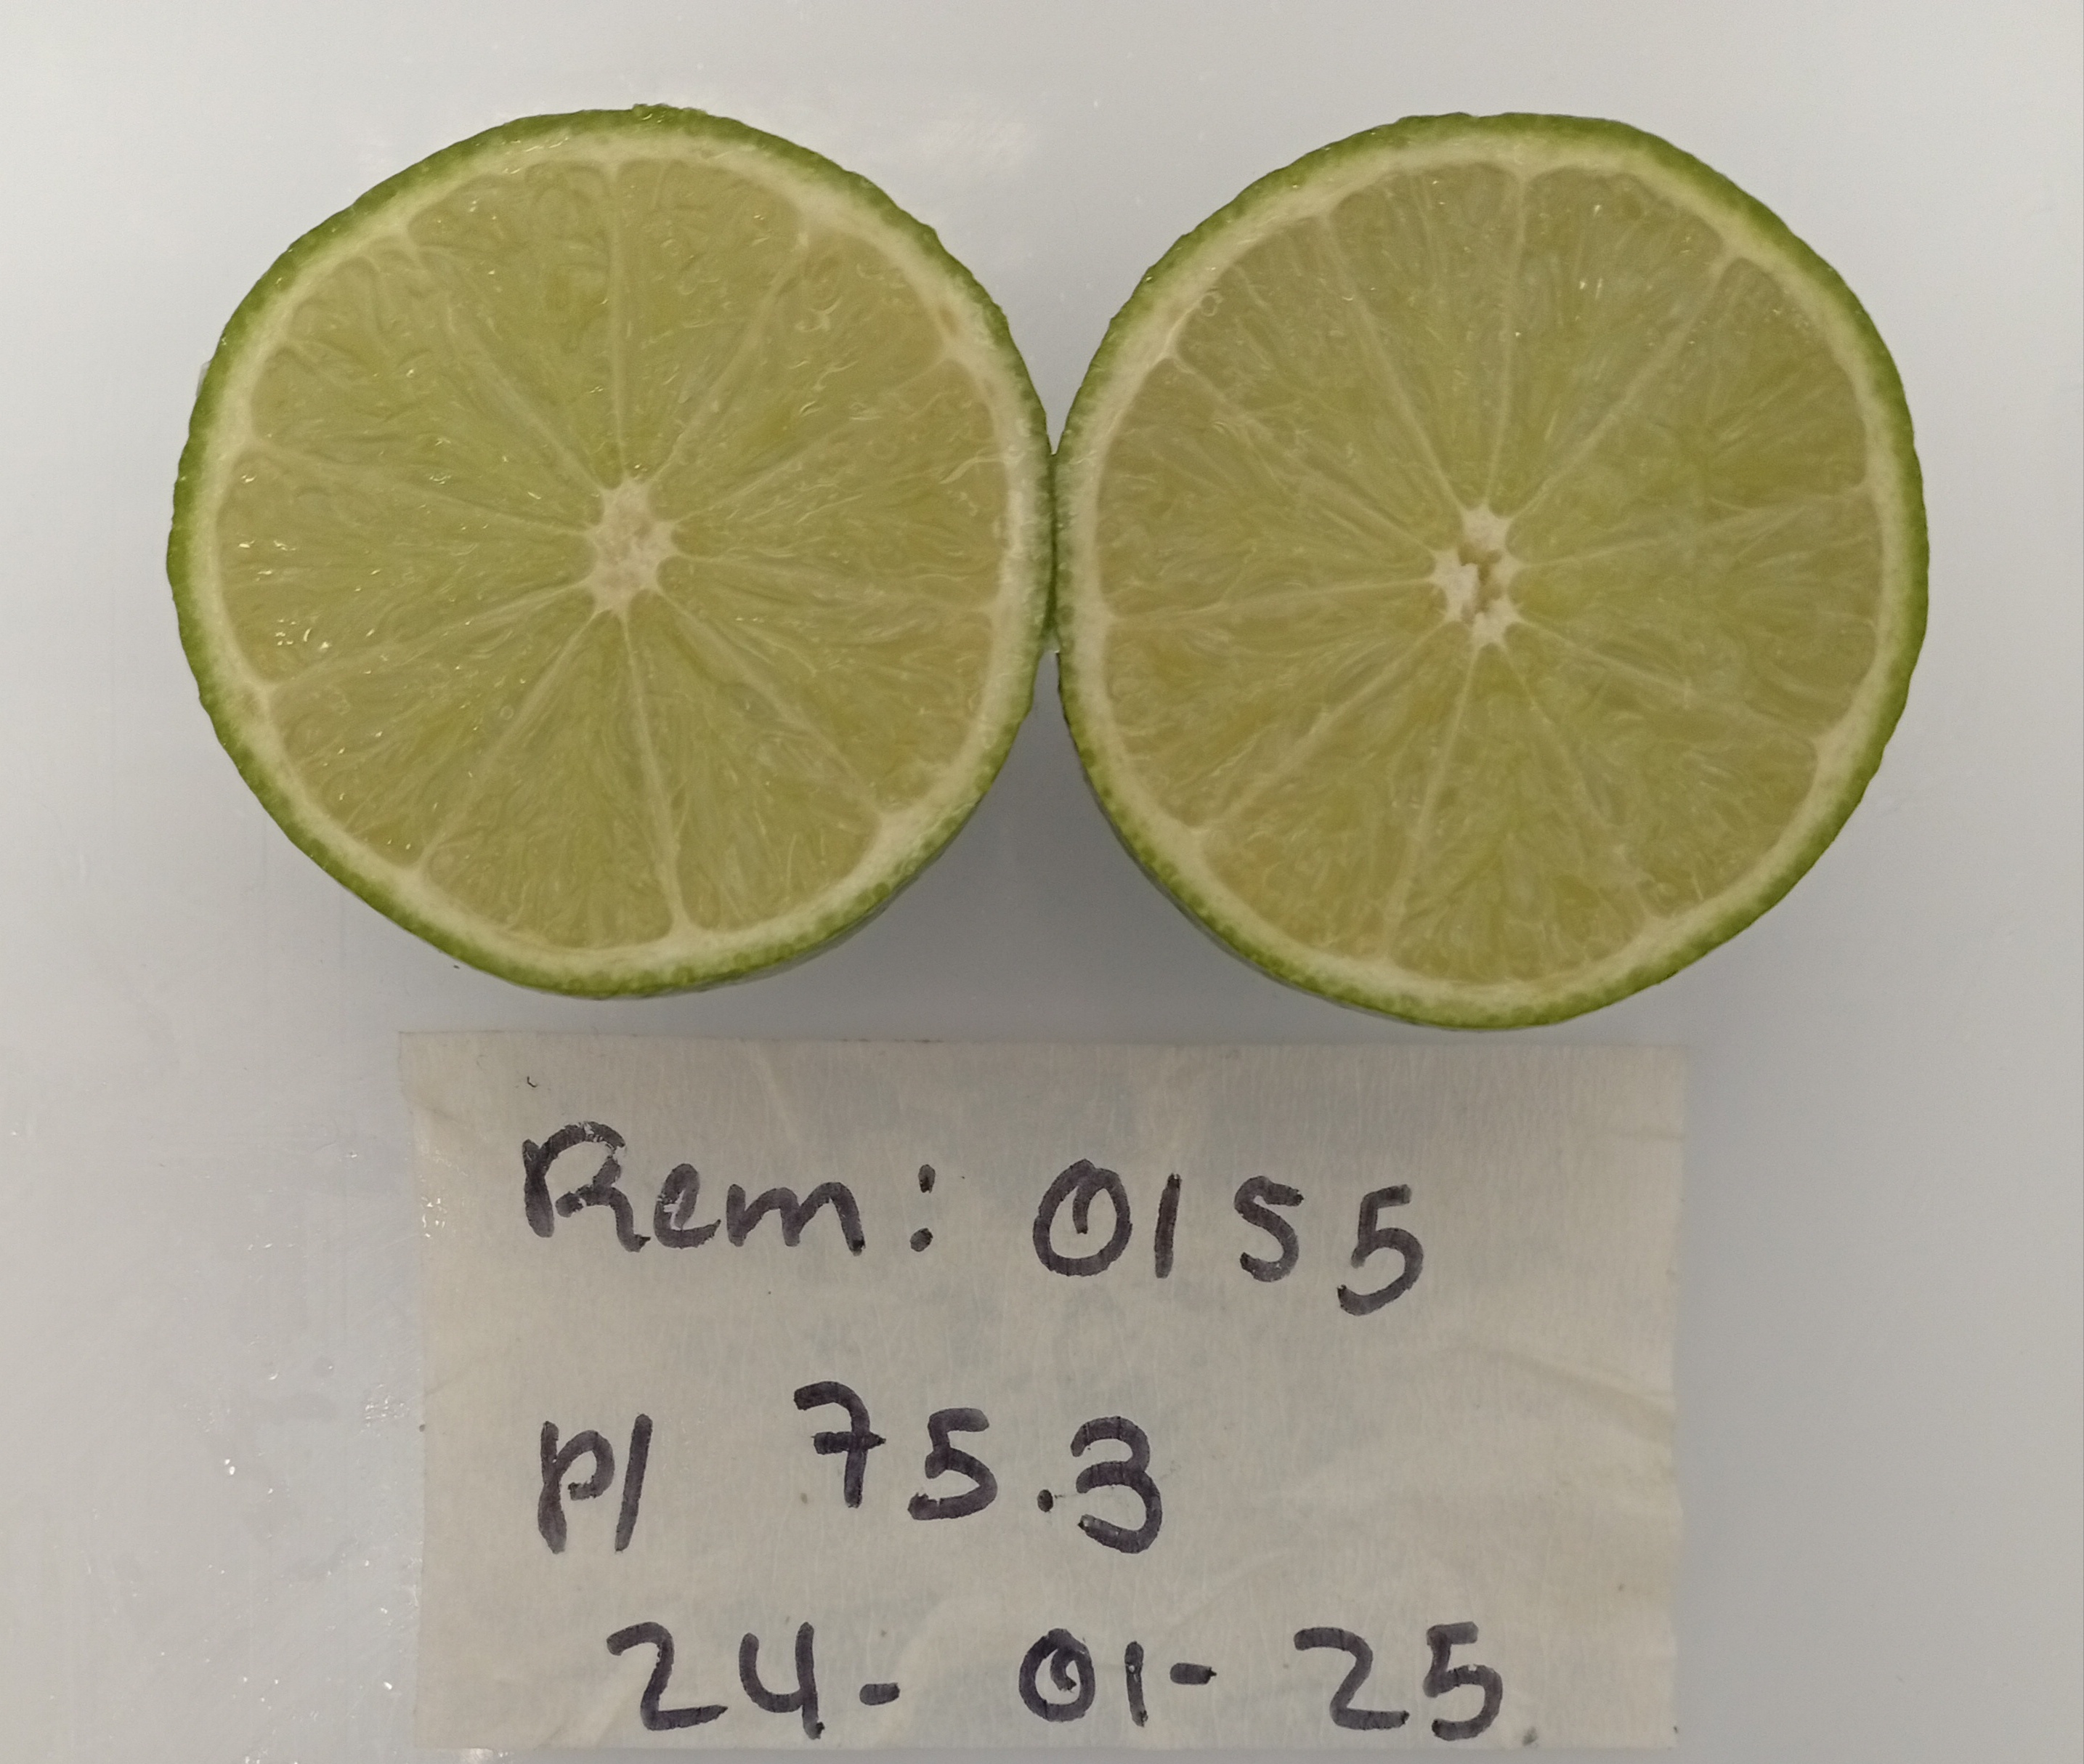 Rem: 0155
P/ 75.3
24-01-25